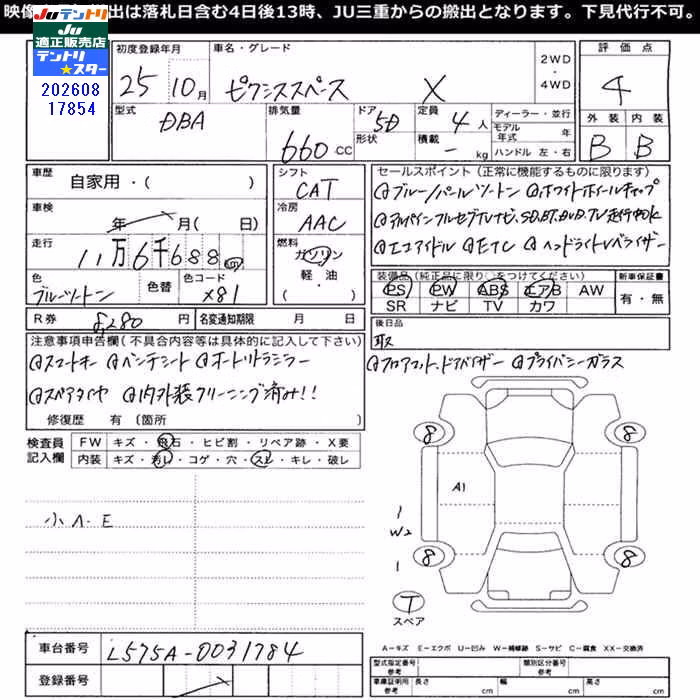 映像 出は落札日含む4日後13時、JU三重からの搬出となります。下見代行不可。
JUテントリ
JU適正販売店
テントリ★スター
202608
17854
初度登録年月 車名・グレード 2WD・4WD 評価点
25 10月 ピクシススペース X 4
型式 排気量 ドア形状 定員 積載 ディーラー・並行 外装 内装
DBA 660CC 5D 4人 - kg モデル年式 年 B B
ハンドル 左・右
車歴 シフト セールスポイント(正常に機能するものに限ります)
自家用・( ) CAT ④ブルー/パールツートン ④ホワイトホイールキャップ
車検 冷房
年 月(日) AAC ④アルパインフルセグTVナビ、SD、BT、DVD、TV走行中OK
走行 燃料
11万6千688km ガソリン ④エコアイドル ④ETC ④ヘッドライトレベライザー
軽・油
・( )
色 色替 色コード 装備品(純正品に限り○をつけてください) 新車保証書
ブルーツートン X81 PS PW ABS エアB AW 有・無
SR ナビ TV カワ
R券 8,280円 名変通知期限 月 日 後日品
取
注意事項申告欄(不具合内容等は具体的に記入して下さい)
④スマートキー ④ベンチシート ④オートリトラミラー ④フロアマット、ドアバイザー ④プライバシーガラス
④スペアタイヤ ④内外装クリーニング済み!!
修復歴 有(箇所 )
検査員記入欄 FW キズ・飛石・ヒビ割・リペア跡・X要
内装 キズ・汚レ・コゲ・穴・スレ・キレ・破レ
8 8
A1
1
小A・E
W2
1
8 8
T
スペア
車台番号 L575A-0031784
登録番号
A=キズ E=エクボ U=凹み W=補修跡 S=サビ C=腐食 XX=交換済
型式指定番号 参考 類別区分番号 参考
車庫証明用 参考 長さ cm 幅 cm 高さ cm